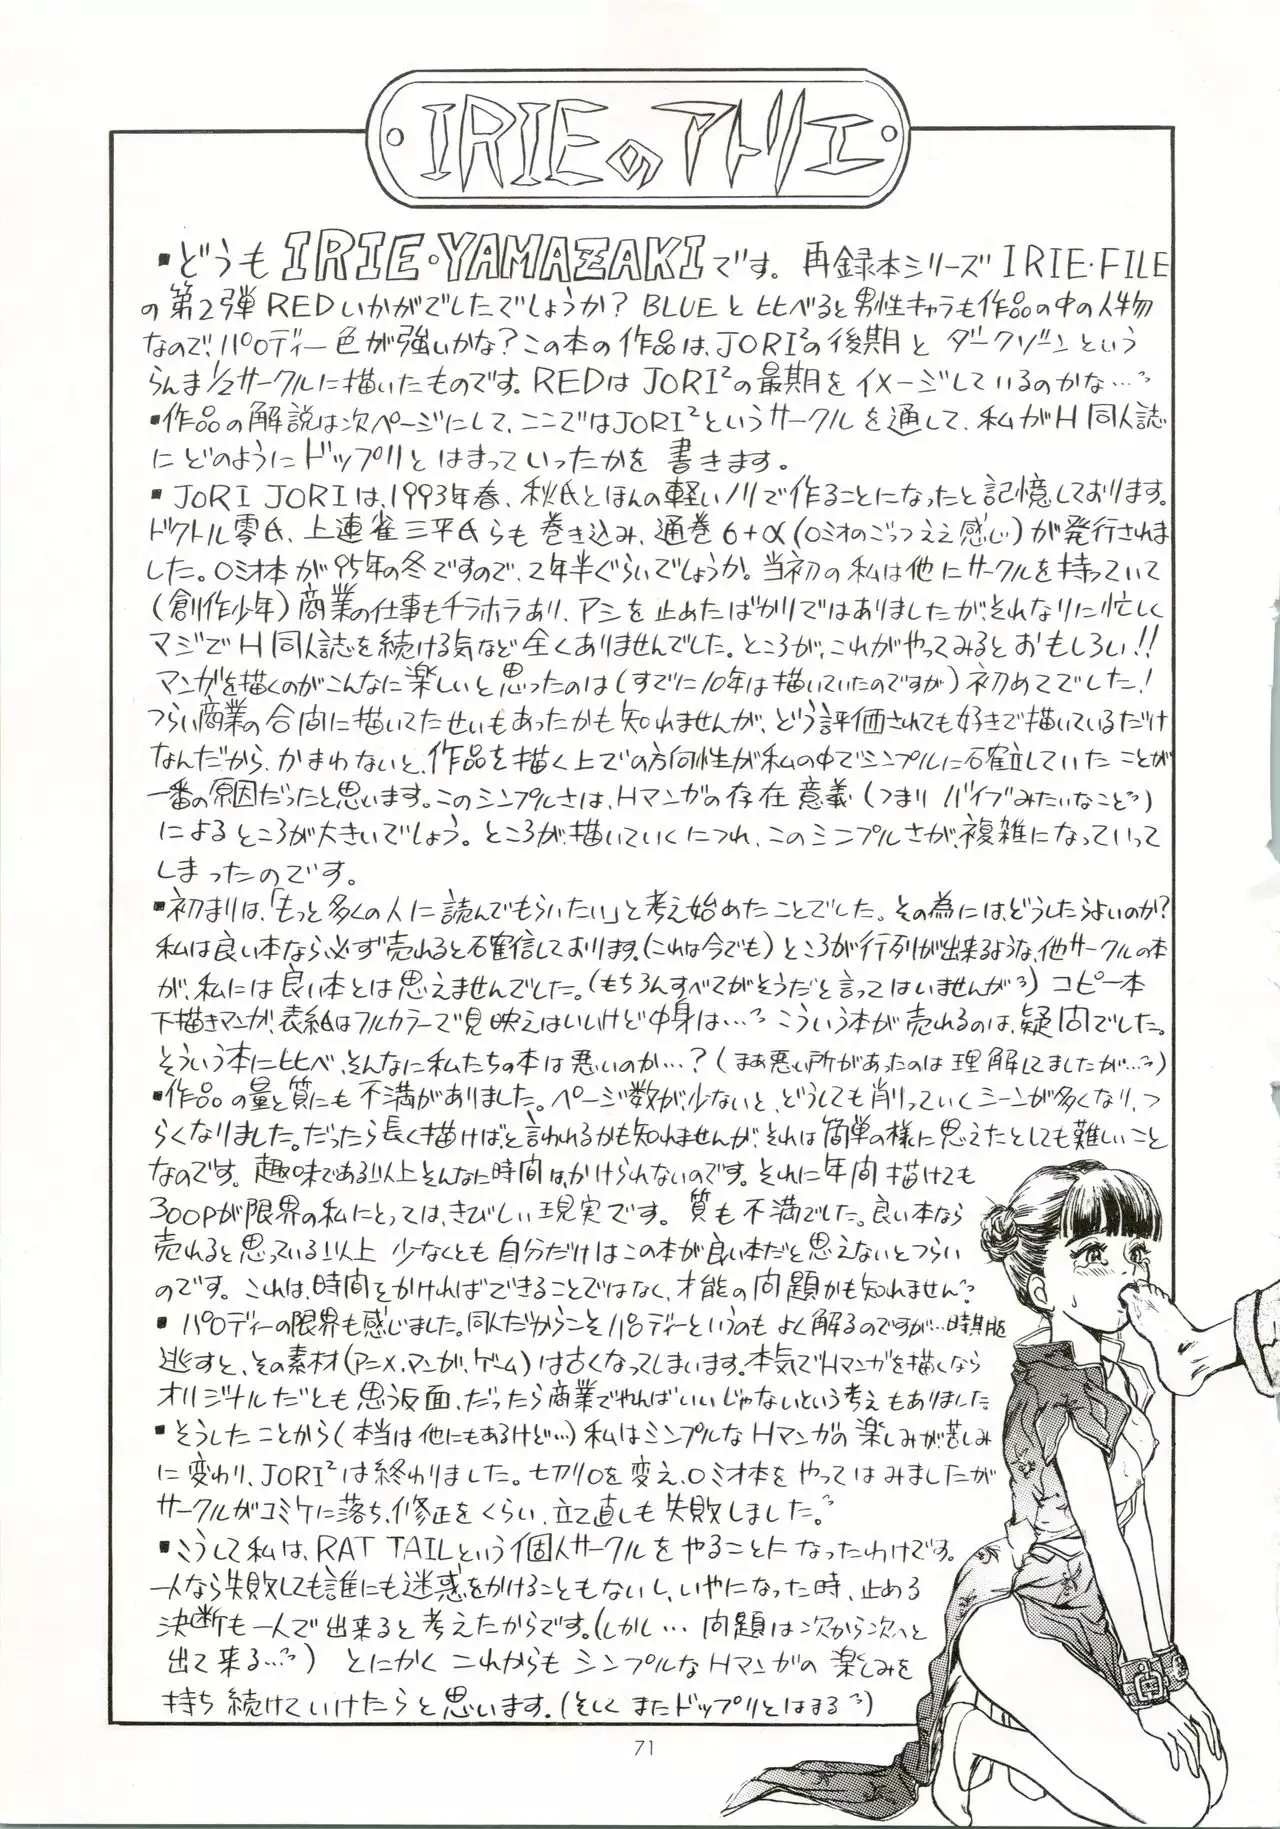 IRIEのアトリエ
▪どうもIRIE・YAMAZAKIです。再録本シリーズIRIE・FILE
の第2弾REDいかがでしたでしょうか? BLUEと比べると男性キャラも作品の中の人物
なので、パロディー色が強いかな?この本の作品は、JORI²の後期とダークゾーンという
らんま1/2サークルに描いたものです。REDはJORI²の最期をイメージしているのかな…
▪作品の解説は次ページにして、ここではJORI²というサークルを通して、私がH同人誌
にどのようにドップリとはまっていったかを書きます。
▪JORI JORIは、1993年春、秋氏とほんの軽いノリで作ることになったと記憶しております。
ドクトル零氏、上連雀三平氏らも巻き込み、通巻6+α(ロミオのごっつええ感じ)が発行されま
した。ロミオ本が95年の冬ですので、2年半ぐらいでしょうか。当初の私は他にサークルを持っていて
(創作少年)商業の仕事もチラホラあり、アシを止めたばかりではありましたが、それなりに忙しく
マジでH同人誌を続ける気など全くありませんでした。ところが、これがやってみるとおもしろい!!
マンガを描くのがこんなに楽しいと思ったのは(すでに10年は描いていたのですが)初めてでした!
つらい商業の合間に描いてたせいもあったかも知れませんが、どう評価されても好きで描いているだけ
なんだから、かまわないと、作品を描く上での方向性が私の中でシンプルに確立していたことが
一番の原因だったと思います。このシンプルさは、Hマンガの存在意義(つまりバイブみたいなこと)
によるところが大きいでしょう。ところが、描いていくにつれ、このシンプルさが、複雑になっていって
しまったのです。
▪初まりは、「もっと多くの人に読んでもらいたい」と考え始めたことでした。その為には、どうしたらよいのか?
私は良い本なら必ず売れると確信しております。(これは今でも)ところが行列が出来るような、他サークルの本
が、私には良い本とは思えませんでした。(もちろんすべてがそうだと言ってはいませんが)コピー本
下描きマンガ、表紙はフルカラーで見映えはいいけど中身は… こういう本が売れるのは、疑問でした。
そういう本に比べ、そんなに私たちの本は悪いのか…?(まあ悪い所があったのは理解してましたが…)
▪作品の量と質にも不満がありました。ページ数が少ないと、どうしても削っていくシーンが多くなり、つ
らくなりました。だったら長く描けば、と言われるかも知れませんが、それは簡単の様に思えたとしても難しいこと
なのです。趣味である以上そんなに時間はかけられないのです。それに年間描けても
300Pが限界の私にとっては、きびしい現実です。質も不満でした。良い本なら
売れると思っている以上少なくとも自分だけはこの本が良い本だと思えないとつらい
のです。これは、時間をかければできることではなく、才能の問題かも知れません。
▪パロディーの限界も感じました。同人だからこそパロディーというのもよく解るのですが…時期を
逃すと、その素材(アニメ、マンガ、ゲーム)は古くなってしまいます。本気でHマンガを描くなら
オリジナルだとも思う反面、だったら商業でやればいいじゃないという考えもありました
▪そうしたことから(本当は他にもあるけど…)私はシンプルなHマンガの楽しみが苦しみ
に変わり、JORI²は終わりました。七刀り口を変え、ロミオ本をやってはみましたが
サークルがコミケに落ち、修正をくらい、立て直しも失敗しました。
▪こうして私は、RAT TAILという個人サークルをやることになったわけです。
一人なら失敗しても誰にも迷惑をかけることもないし、いやになった時、止める
決断も一人で出来ると考えたからです。(しかし…問題は次から次へと
出て来る…)とにかくこれからもシンプルなHマンガの楽しみを
持ち続けていけたらと思います。(そしてまたドップリとはまる)
71